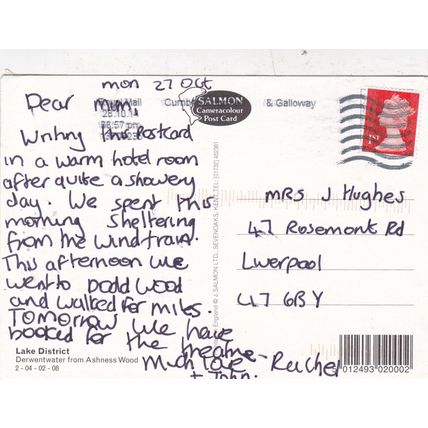 mon 27 Oct
Royal Mail
Cumb
& Galloway
28.10.14
06:57 pm
SALMON
Cameracolour
Post Card
1ST
Dear mum,
Writing this Postcard
in a warm hotel room
after quite a showery
day. We spent this
morning sheltering
from the wind + rain.
This afternoon we
went to Dodd Wood
and walked for miles.
Tomorrow we have
booked for the theatre -
Much love Rachel
+ John.
MRS J Hughes
47 Rosemont Rd
Liverpool
L17 6BY
J. SALMON LTD., SEVENOAKS, KENT. TEL: (01732) 452381
England ©
Lake District
Derwentwater from Ashness Wood
2 - 04 - 02 - 08
012493 020002